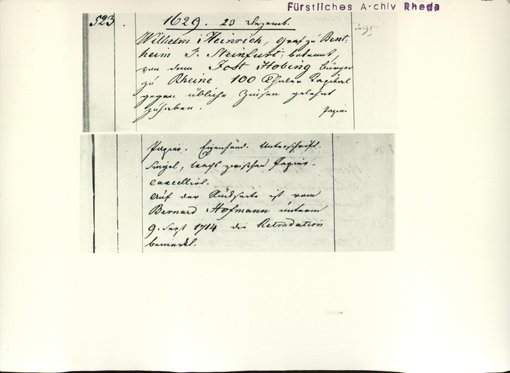 Fürstliches Archiv Rheda
523.
1629. 23 Dezemb.
Wilhelm Heinrich, Graf zu Bent-
heim & Steinfurt, bekennt,
von dem Jost Hobing Bürger
zu Rheine 100 Thaler Kapital
gegen übliche Zinsen geliehen
zu haben.
Papier
Papier. Eigenhänd. Unterschrift.
Siegel, Wachs zwischen Papier.
cancellirt.
Auf der Rückseite ist vom
Bernard Hofmann unterm
9. Sept 1714 die Retradition
bemerkt.